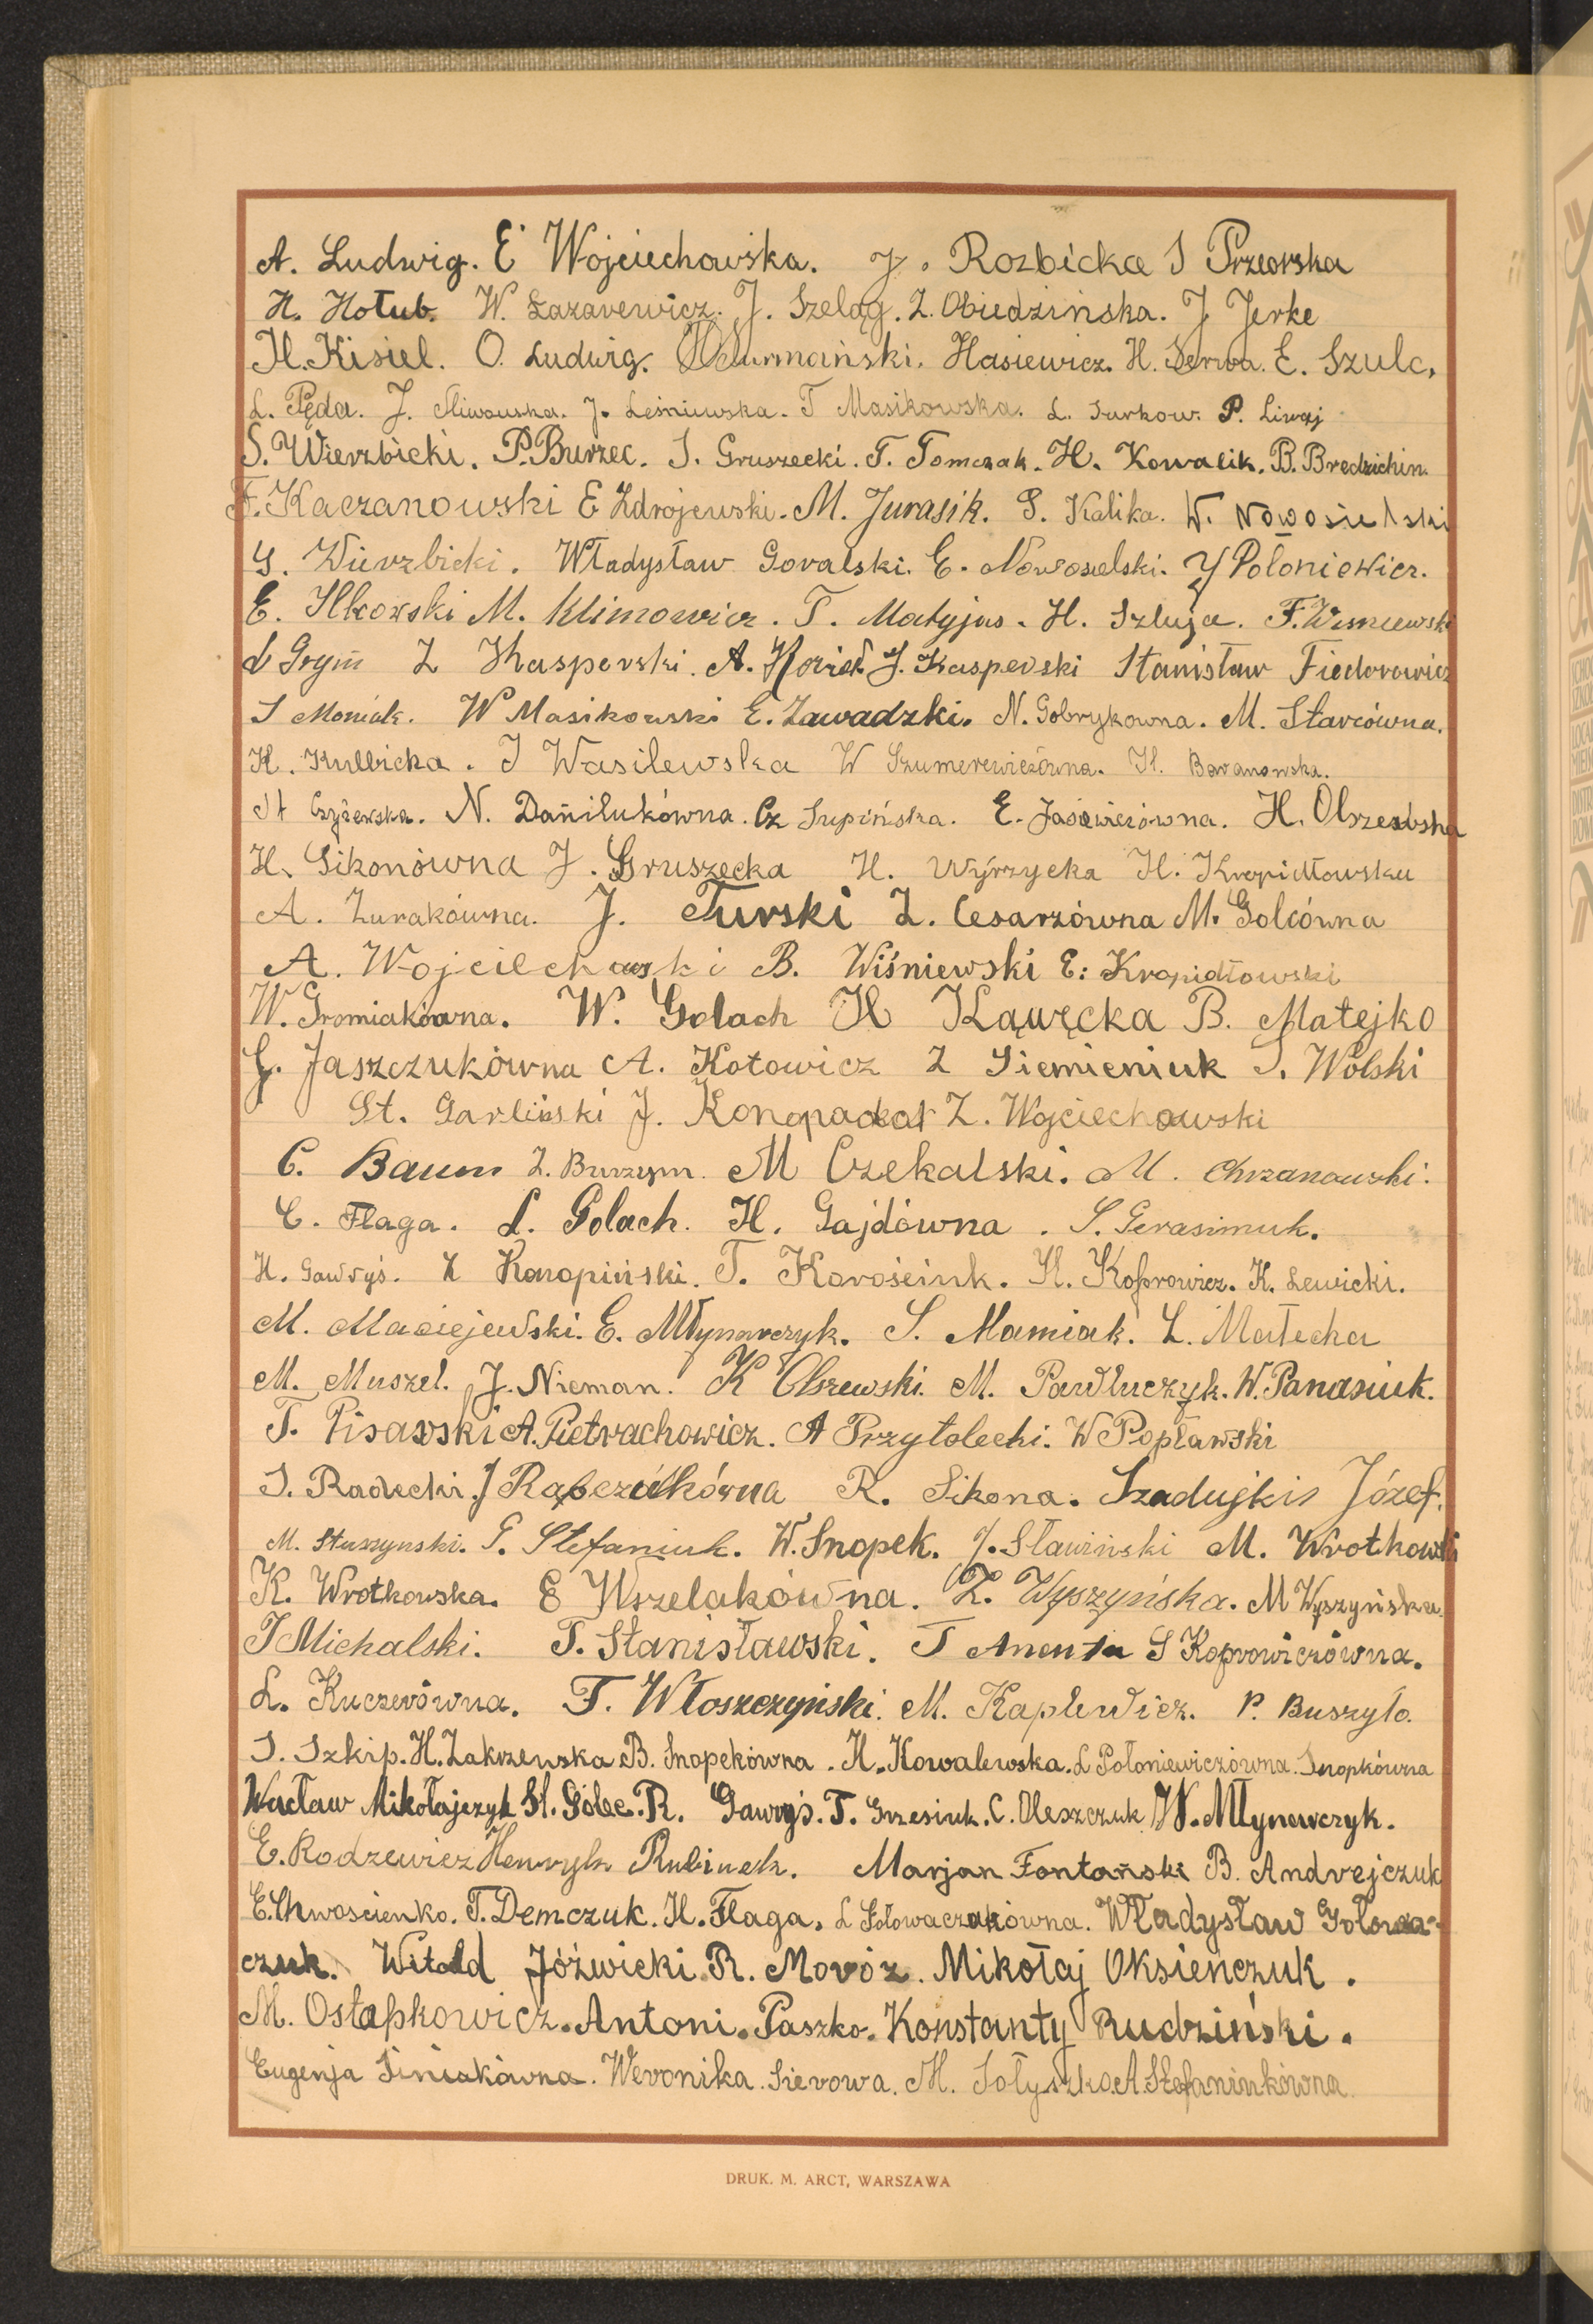 A. Ludwig. E Wojciechowska. J. Rozbicka I Przeorska
H. Hołub. W. Łazarewicz. J. Szeląg. Z. Obiedzińska. J Jerke
H. Kisiel. O. Ludwig. Hasiewicz. H. Serwa. E. Szulc,
L. Pęda. J. Śliwowska. J. Leśniewska. T Masikowska. L. Turkow. P. Liwaj
S. Wierzbicki. P. Burzec. S. Gruszecki. T. Tomczak. H. Kowalik. B. Bredzichin.
F. Kaczanowski E Zdrojewski. M. Jurasik. S. Kalika. W. Nowosielski
Wierzbicki. Władysław Goralski. E. Nowosielski. Y Połoniewicz.
E. Ilkowski M. Klimowicz. T. Matyjas. H. Szluja. F. Wiśniewski
L Grym Z Kasperski. A. Kozieł J. Kasperski Stanisław Fiedorowicz
S Moniak. W Masikowski E. Zawadzki. N. Gobrykowna. M. Starcówna.
K. Kulbicka. J Wasilewska W Szumerewiczówna. H. Baranowska.
St Czyżewska. N. Daniluk­ówna. Cz Supińska. E. Jasiewiczówna. H. Olszewska
H. Sikonówna J. Gruszecka H. Wyrzycka H. Kropidłowska
A. Żurakówna. J. Turski Z. Cesarzówna M. Golcówna
A. Wojciechowski B. Wiśniewski E. Kropidłowski
W. Gromiakówna. W. Golach H Kąwęcka B. Matejko
G. Jaszczukówna A. Kotowicz Z Siemieniuk S. Wolski
St. Garliński J. Konopadat Z. Wojciechowski
C. Baum Z. Burzym. M Czekalski. M. Chrzanowski.
C. Flaga. L. Golach. H. Gajdówna. S. Gerasimuk.
H. Gawryś. Z Konopiński. T. Korościuk. H. Koprowicz. K. Lewicki.
M. Maciejewski. E. Młynarczyk. S. Mamiak. L. Małecka
M. Muszel. J. Nieman. K Olszewski. M. Pawluczyk. W. Panasiuk.
T. Pisarski A. Pietrachowicz. A Przytolecki. W Popławski
S. Radecki. J Rąbczukówna R. Sikona. Szadujkis Józef.
M. Staszynski. G. Stefaniuk. W. Snopek. J. Sławiński M. Wrotkowski
K. Wrotkowska. E Wszelakówna. Z. Wyszyńska. M Wyszyńska.
J Michalski. T. Stanisławski. T Amenta S Koprowiczówna.
L. Kuczerówna. F. Włoszczyński. M. Kaplewicz. P. Buszyło.
S. Szkip. H. Zakrzewska B. Snopekówna. H. Kowalewska. L Połoniewiczówna. Snopkówna
Wacław Mikołajczyk St. Golec. R. Gawryś. T. Grzesiuk. C. Oleszczuk W. Młynarczyk.
E. Rodzewicz Henryk Rubinek. Marjan Fontański B. Andrejczuk
E. Chwościenko. T. Demczuk. H. Flaga. L Gołowaczukówna. Władysław Gołowa-
czuk. Witold Jóźwicki. R. Moróz. Mikołaj Oksieńczuk.
M. Ostapkowicz. Antoni. Paszko. Konstanty Rudziński.
Eugenja Siniakówna. Weronika. Sierowa. M. Sołyszko. A. Stefaniukówna.
DRUK. M. ARCT, WARSZAWA